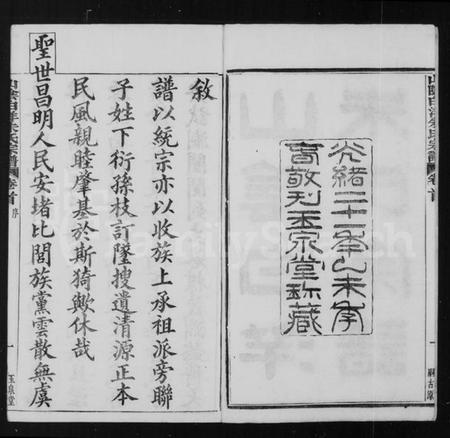 光緒二十一年乙未孝
言敬刋玉泉堂珍藏
敘
譜以統宗亦以收族上承祖派旁聯
子姓下衍孫枝訂墜搜遺清源正本
民風親睦肇基於斯猗歟休哉
聖世昌明人民安堵比閭族黨雲散無虞
卷首
序
一
玉泉堂
FamilySearch